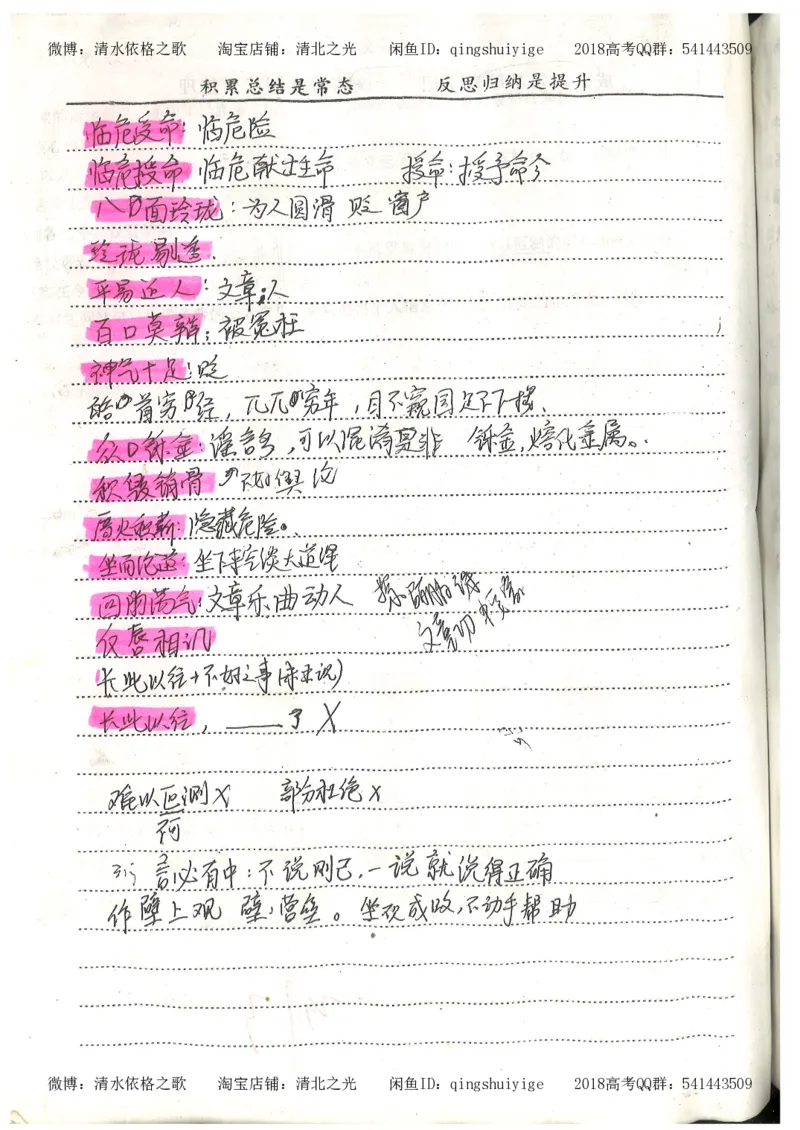 微博：清水依格之歌 淘宝店铺：清北之光 闲鱼ID：qingshuiyige 2018高考QQ群：541443509
积累总结是常态 反思归纳是提升
临危受命：临危险
临危授命 临危献出生命 授命：授予命令
八面玲珑：为人圆滑 贬 窗户
玲珑剔透.
平易近人：文章;人
百口莫辩：被冤枉
神气十足：贬
皓首穷经，兀兀穷年，目不窥园足不下楼、
众口铄金：谣言多，可以混淆是非 铄金，熔化金属。
积毁销骨
厝火积薪：隐藏危险。
坐而论道：坐下来空谈大道理
回肠荡气：文章乐曲动人
反唇相讥
长此以往+不好之事(未来说)
长此以往，____了 X
难以叵测X 部分杜绝X
言必有中：不说则已，一说就说得正确
作壁上观 壁，营垒。坐观成败，不动手帮助
微博：清水依格之歌 淘宝店铺：清北之光 闲鱼ID：qingshuiyige 2018高考QQ群：541443509